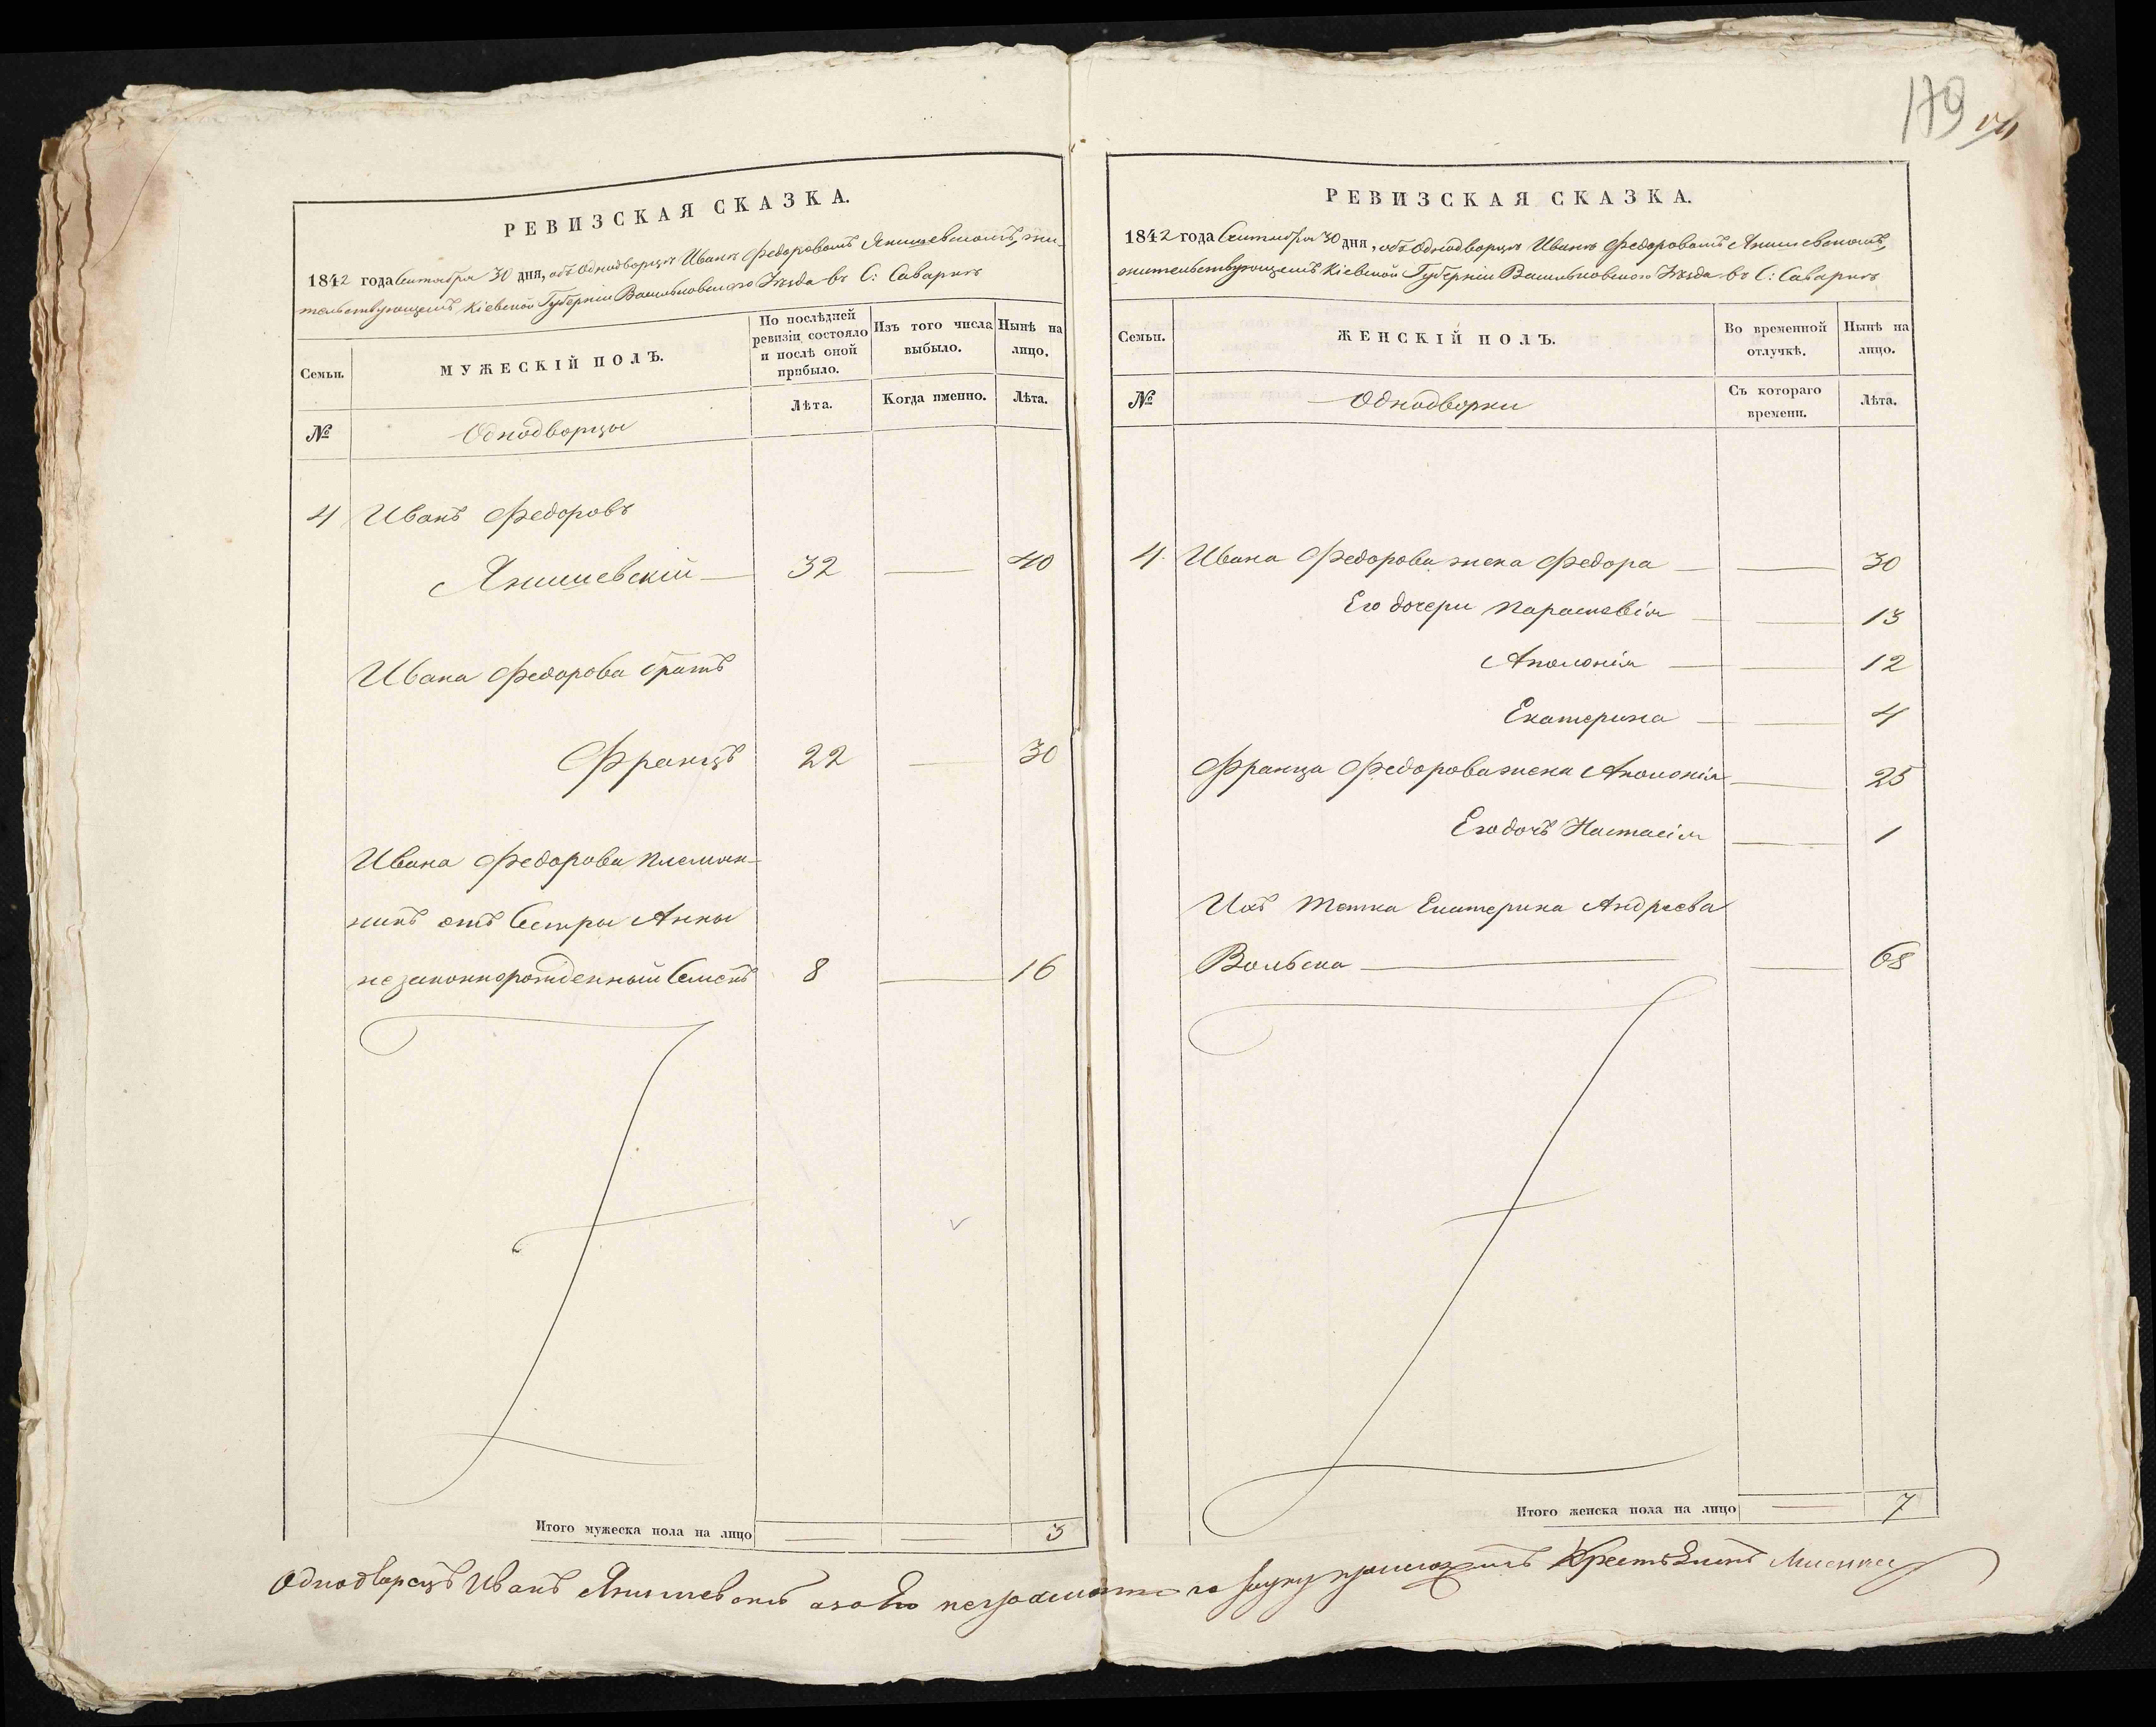 179
РЕВИЗСКАЯ СКАЗКА.
1842 года Сентября 30 дня, объ Однодворцѣ Иванѣ Федоровомъ Янишевскомъ, жи-
тельствующемъ Кіевской Губерніи Васильковского Уѣзда въ С: Саваркѣ
Семьи.
МУЖЕСКІЙ ПОЛЪ.
По послѣдней ревизіи состояло и послѣ оной прибыло.
Изъ того числа выбыло.
Нынѣ на лицо.
№
Однодворцы
Лѣта.
Когда именно.
Лѣта.
4 Иванъ Федоровъ
Янишевскій 32 — 40
Ивана Федорова братъ
Францъ 22 — 30
Ивана Федорова племян-
никъ отъ Сестры Анны
незаконнорожденный Семенъ 8 — 16
Итого мужеска пола на лицо — — 3
РЕВИЗСКАЯ СКАЗКА.
1842 года Сентября 30 дня, объ Однодворцѣ Иванѣ Федоровомъ Янишевскомъ,
жительствующемъ Кіевской Губерніи Васильковского Уѣзда въ С: Саваркѣ
Семьи.
ЖЕНСКІЙ ПОЛЪ.
Во временной отлучкѣ.
Нынѣ на лицо.
№
Однодворки
Съ котораго времени.
Лѣта.
4. Ивана Федорова жена Федора — — 30
Его дочери Параскевія — — 13
Аполонія — — 12
Екатерина — — 4
Франца Федорова жена Аполонія — 25
Его дочь Настасія — 1
Ихъ тетка Екатерина Андреева
Вольска — — 68
Итого женска пола на лицо — 7
Однодварецъ Иванъ Янишевскъ а за Его неграмотного руку приложилъ Крестьянинъ